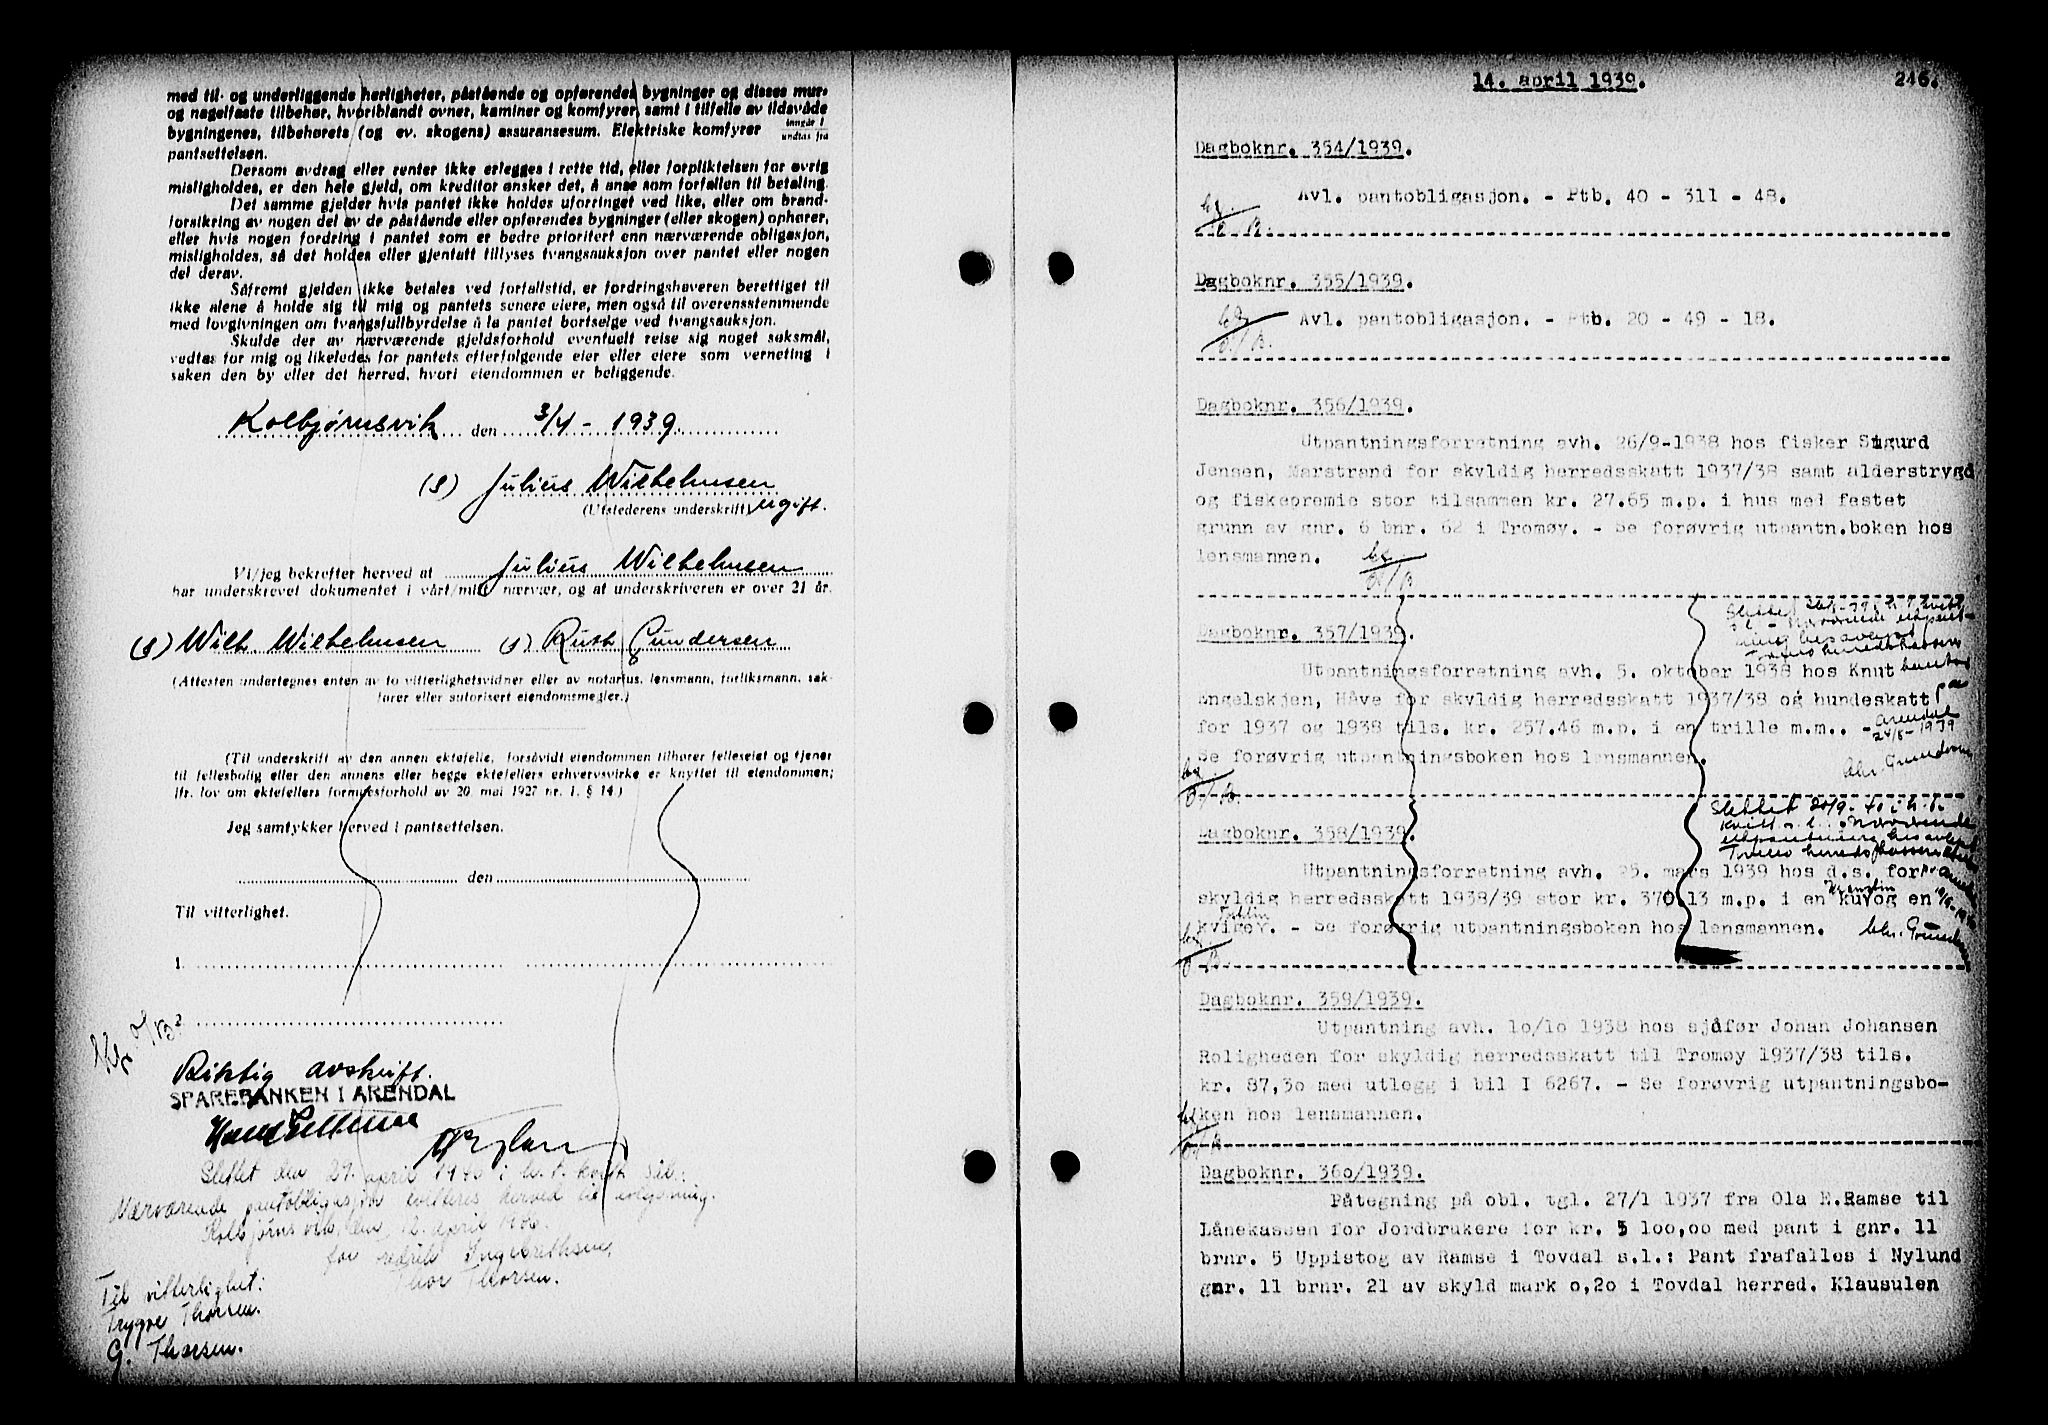 med til- og underliggende herligheter, påstående og opførendes bygninger og disses mur-
og nagelfaste tilbehør, hvoriblandt ovner, kaminer og komfyrer, samt i tilfelle av ildsvåde
bygningenes, tilbehørets (og ev. skogens) assuransesum. Elektriske komfyrer inngår i
undtas fra
pantsettelsen.
Dersom avdrag eller renter ikke erlegges i rette tid, eller forpliktelsen for øvrig
misligholdes, er den hele gjeld, om kreditor ønsker det, å anse som forfallen til betaling.
Det samme gjelder hvis pantet ikke holdes uforringet ved like, eller om brand-
forsikring av nogen del av de påstående eller opførendes bygninger (eller skogen) ophører,
eller hvis nogen fordring i pantet som er bedre prioritert enn nærværende obligasjon,
misligholdes, så det holdes eller gjentatt tillyses tvangsauksjon over pantet eller nogen
del derav.
Såfremt gjelden ikke betales ved forfallstid, er fordringshaveren berettiget til
ikke alene å holde sig til mig og pantets senere eiere, men også til overensstemmende
med lovgivningen om tvangsfullbyrdelse å la pantet bortselge ved tvangsauksjon.
Skulde der av nærværende gjeldsforhold eventuelt reise sig noget søksmål,
vedtas for mig og likeledes for pantets efterfølgende eier eller eiere som verneting i
saken den by eller det herred, hvori eiendommen er beliggende.
Kolbjørnsvik den 3/4 - 1939.
(s) Julius Wilhelmsen
(Utstederens underskrift) ugift.
Vi/jeg bekrefter herved at Julius Wilhelmsen
har underskrevet dokumentet i vårt/mitt nærvær, og at underskriveren er over 21 år.
(s) Wilh. Wilhelmsen (s) Ruth Gundersen
(Attesten undertegnes enten av to vitterlighetsvidner eller av notarius, lensmann, forliksmann, sak-
fører eller autorisert eiendomsmegler.)
(Til underskrift av den annen ektefelle, forsåvidt eiendommen tilhører felleseiet og tjener
til fellesbolig eller den annens eller begge ektefellers erhvervsvirke er knyttet til eiendommen;
jfr. lov om ektefellers formuesforhold av 20. mai 1927 nr. 1, § 14.)
Jeg samtykker herved i pantsettelsen.
den
Til vitterlighet.
1.
2
Riktig avskrift.
SPAREBANKEN I ARENDAL
Slettet den 27. april 1940 i h. t. kvitt. sål.:
Nærværende pantobligasjon kvitteres herved til avlysning.
Kolbjørnsvik, den 12. april 1940.
for Fredrik Ingebrethsen,
Thor Thorsen.
Til vitterlighet:
Trygve Thorsen.
G. Thorsen.
14. april 1939. 246.
Dagboknr. 354/1939.
Avl. pantobligasjon. - Ptb. 40 - 311 - 48.
Dagboknr. 355/1939.
Avl. pantobligasjon. - Ptb. 20 - 49 - 18.
Dagboknr. 356/1939.
Utpantningsforretning avh. 26/9-1938 hos fisker Sigurd
Jensen, Marstrand for skyldig herredsskatt 1937/38 samt alderstrygd
og fiskepremie stor tilsammen kr. 27.65 m.p. i hus med festet
grunn av gnr. 6 bnr. 62 i Tromøy. - Se forøvrig utpantn.boken hos
lensmannen.
Slettet 26/8-39 i h.t. kvitt.
s.l. - Nærværende utpant-
ning besørges avlyst
herredskasserer
kontor
Arendal
24/8-1939
Chr. Gundersen
Dagboknr. 357/1939.
Utpantningsforretning avh. 5. oktober 1938 hos Knut
Engelskjen, Håve for skyldig herredsskatt 1937/38 og hundeskatt
for 1937 og 1938 tils. kr. 257.46 m.p. i en trille m.m.. -
Se forøvrig utpantningsboken hos lensmannen.
Slettet 20/9-40 i h.t.
kvitt. s.l.: Nærværende
utpantning
Dagboknr. 358/1939.
Utpantningsforretning avh. 25. mars 1939 hos d.s. for
skyldig herredsskatt 1938/39 stor kr. 370.13 m.p. i en ku og en
kvigev. - Se forøvrig utpantningsboken hos lensmannen.
Dagboknr. 359/1939.
Utpantning avh. 1o/1o 1938 hos sjåfør Johan Johansen
Roligheden for skyldig herredsskatt til Tromøy 1937/38 tils.
kr. 87,3o med utlegg i bil I 6267. - Se forøvrig utpantningsbo-
ken hos lensmannen.
Dagboknr. 36o/1939.
Påtegning på obl. tgl. 27/1 1937 fra Ola E.Ramse til
Lånekassen for Jordbrukere for kr. 5 1oo,oo med pant i gnr. 11
brnr. 5 Uppistog av Ramse i Tovdal s.l.: Pant frafalles i Nylund
gnr. 11 brnr. 21 av skyld mark o,2o i Tovdal herred. Klausulen